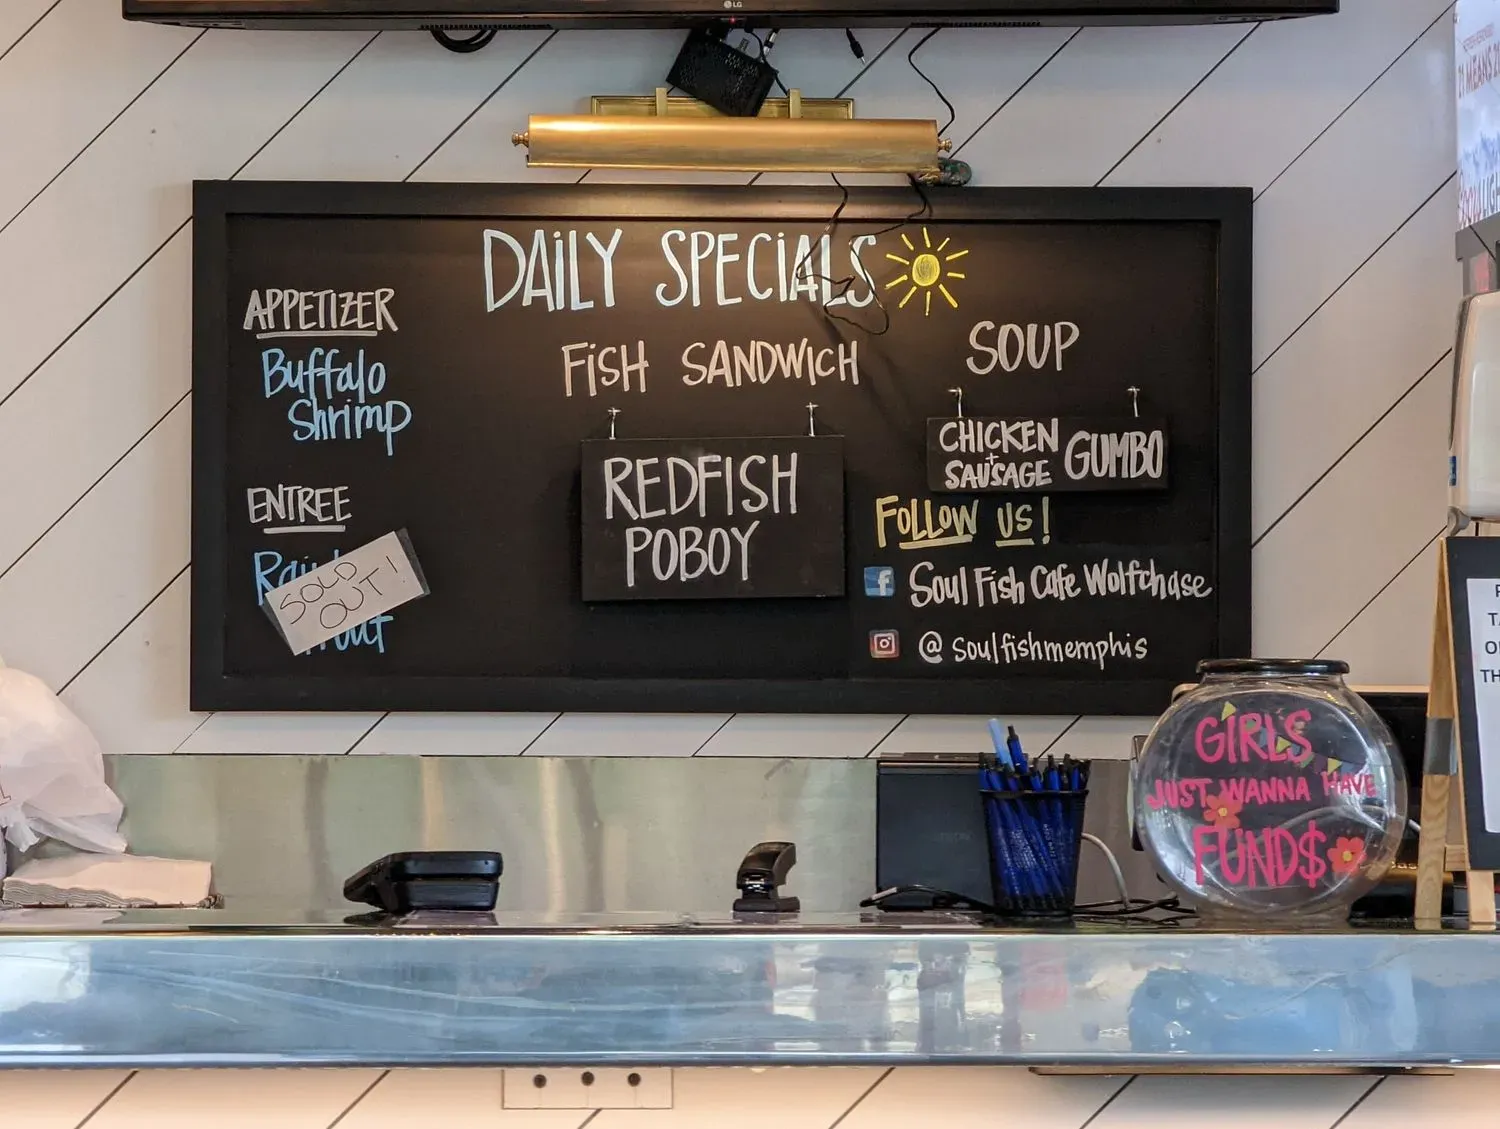 LG
DAILY SPECIALS
APPETIZER
Buffalo
Shrimp
ENTREE
SOLD
OUT!
FISH SANDWICH
REDFISH
POBOY
SOUP
CHICKEN
+
SAUSAGE
GUMBO
FOLLOW US!
f Soul Fish Cafe Wolfchase
@soulfishmemphis
GIRLS
JUST WANNA HAVE
FUND$
21 MEANS